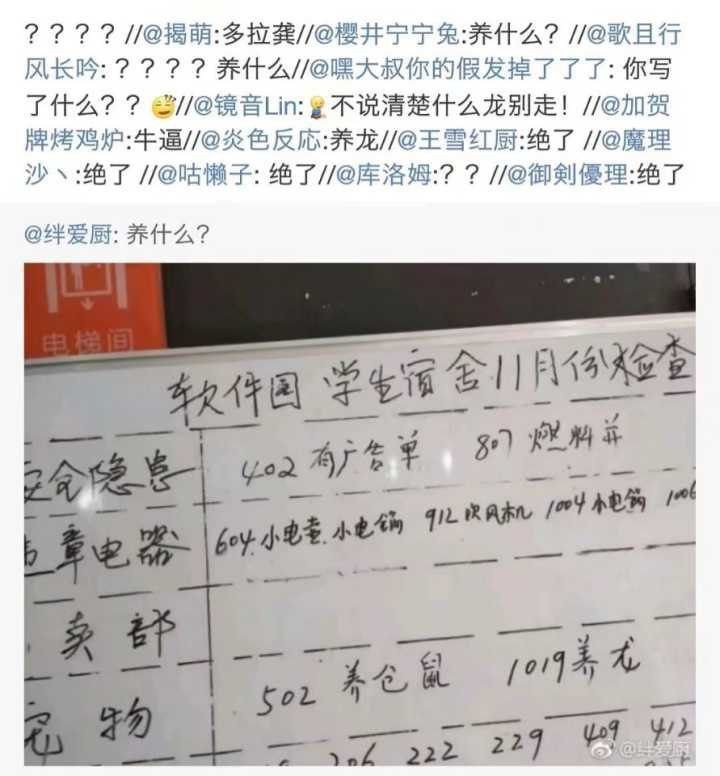 ？？？？//@揭萌:多拉龚//@樱井宁宁兔:养什么？//@歌且行
风长吟:？？？？养什么//@嘿大叔你的假发掉了了了: 你写
了什么？？//@镜音Lin:不说清楚什么龙别走！//@加贺
牌烤鸡炉:牛逼//@炎色反応:养龙//@王雪红厨:绝了 //@魔理
沙丶:绝了 //@咕懒子: 绝了//@库洛姆:？？//@御剣優理:绝了
@绊爱厨: 养什么?
电梯间
软件园 学生宿舍11月份检查
安全隐患 402 有广告单 807 燃料并
章电器 604.小电壶.小电锅 912 吹风机 1004 小电锅 1006
卖部
宠物 502 养仓鼠 1019 养龙
206 222 229 409 412
@绊爱厨